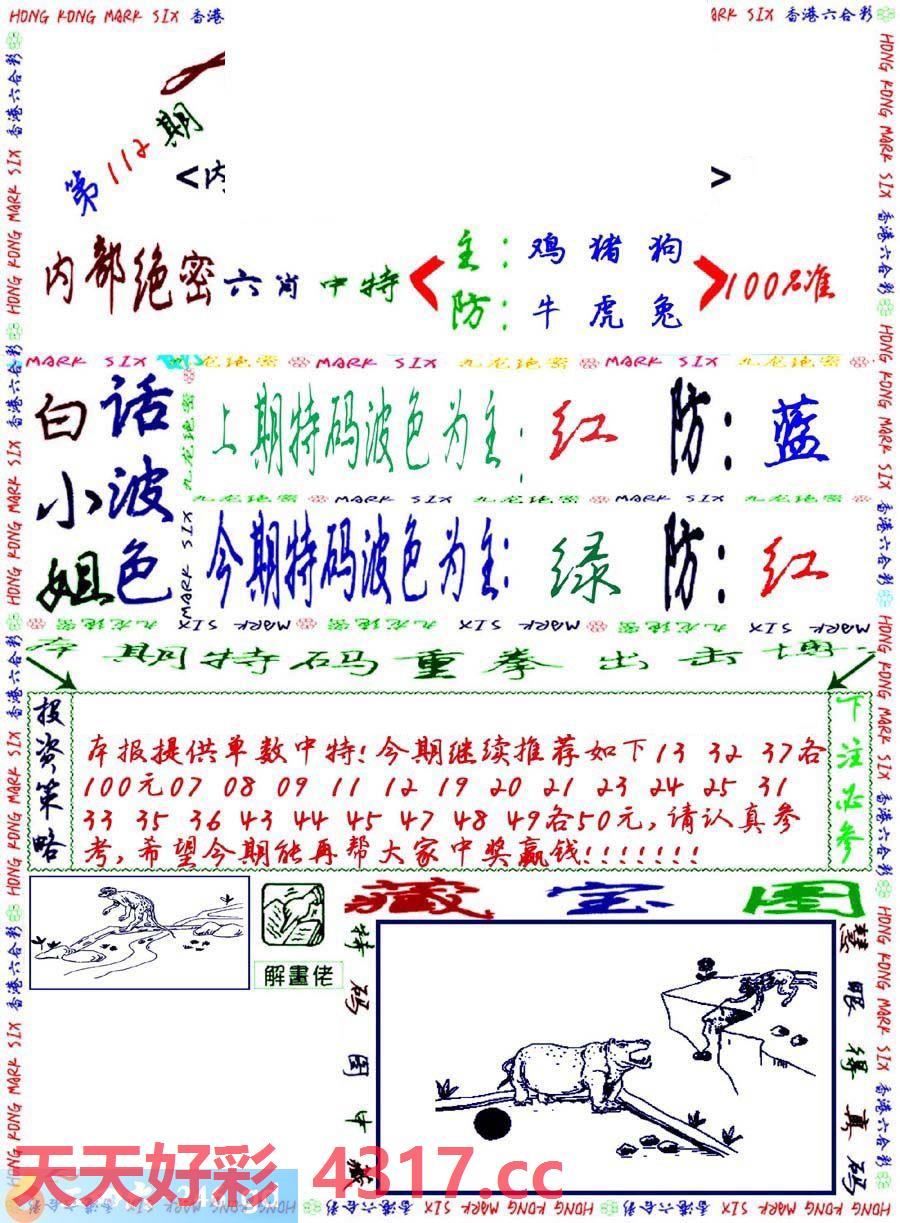 HONG KONG MARK SIX 香港
ARK SIX 香港六合彩
第112期
<内
>
内部绝密六肖中特
主：鸡 猪 狗
防：牛 虎 兔
100%准
MARK SIX 九龙绝密 MARK SIX 九龙绝密 MARK SIX 九龙绝密
白话
小波
姐色
上期特码波色为主：红 防：蓝
九龙绝密 MARK SIX 九龙绝密 MARK SIX 九龙绝密
今期特码波色为主：绿 防：红
MARK SIX 九龙绝密 MARK SIX 九龙绝密 MARK SIX
期特码重拳出击
投资策略
本报提供单数中特!今期继续推荐如下13 32 37各
100元07 08 09 11 12 19 20 21 23 24 25 31
33 35 36 43 44 45 47 48 49各50元,请认真参
考,希望今期能再帮大家中奖赢钱!!!!!!!
下注必参
解畫佬
藏宝图
特码图中藏
慧眼得真码
天天好彩 4317.cc
HONG KONG MARK SIX 香港六合彩